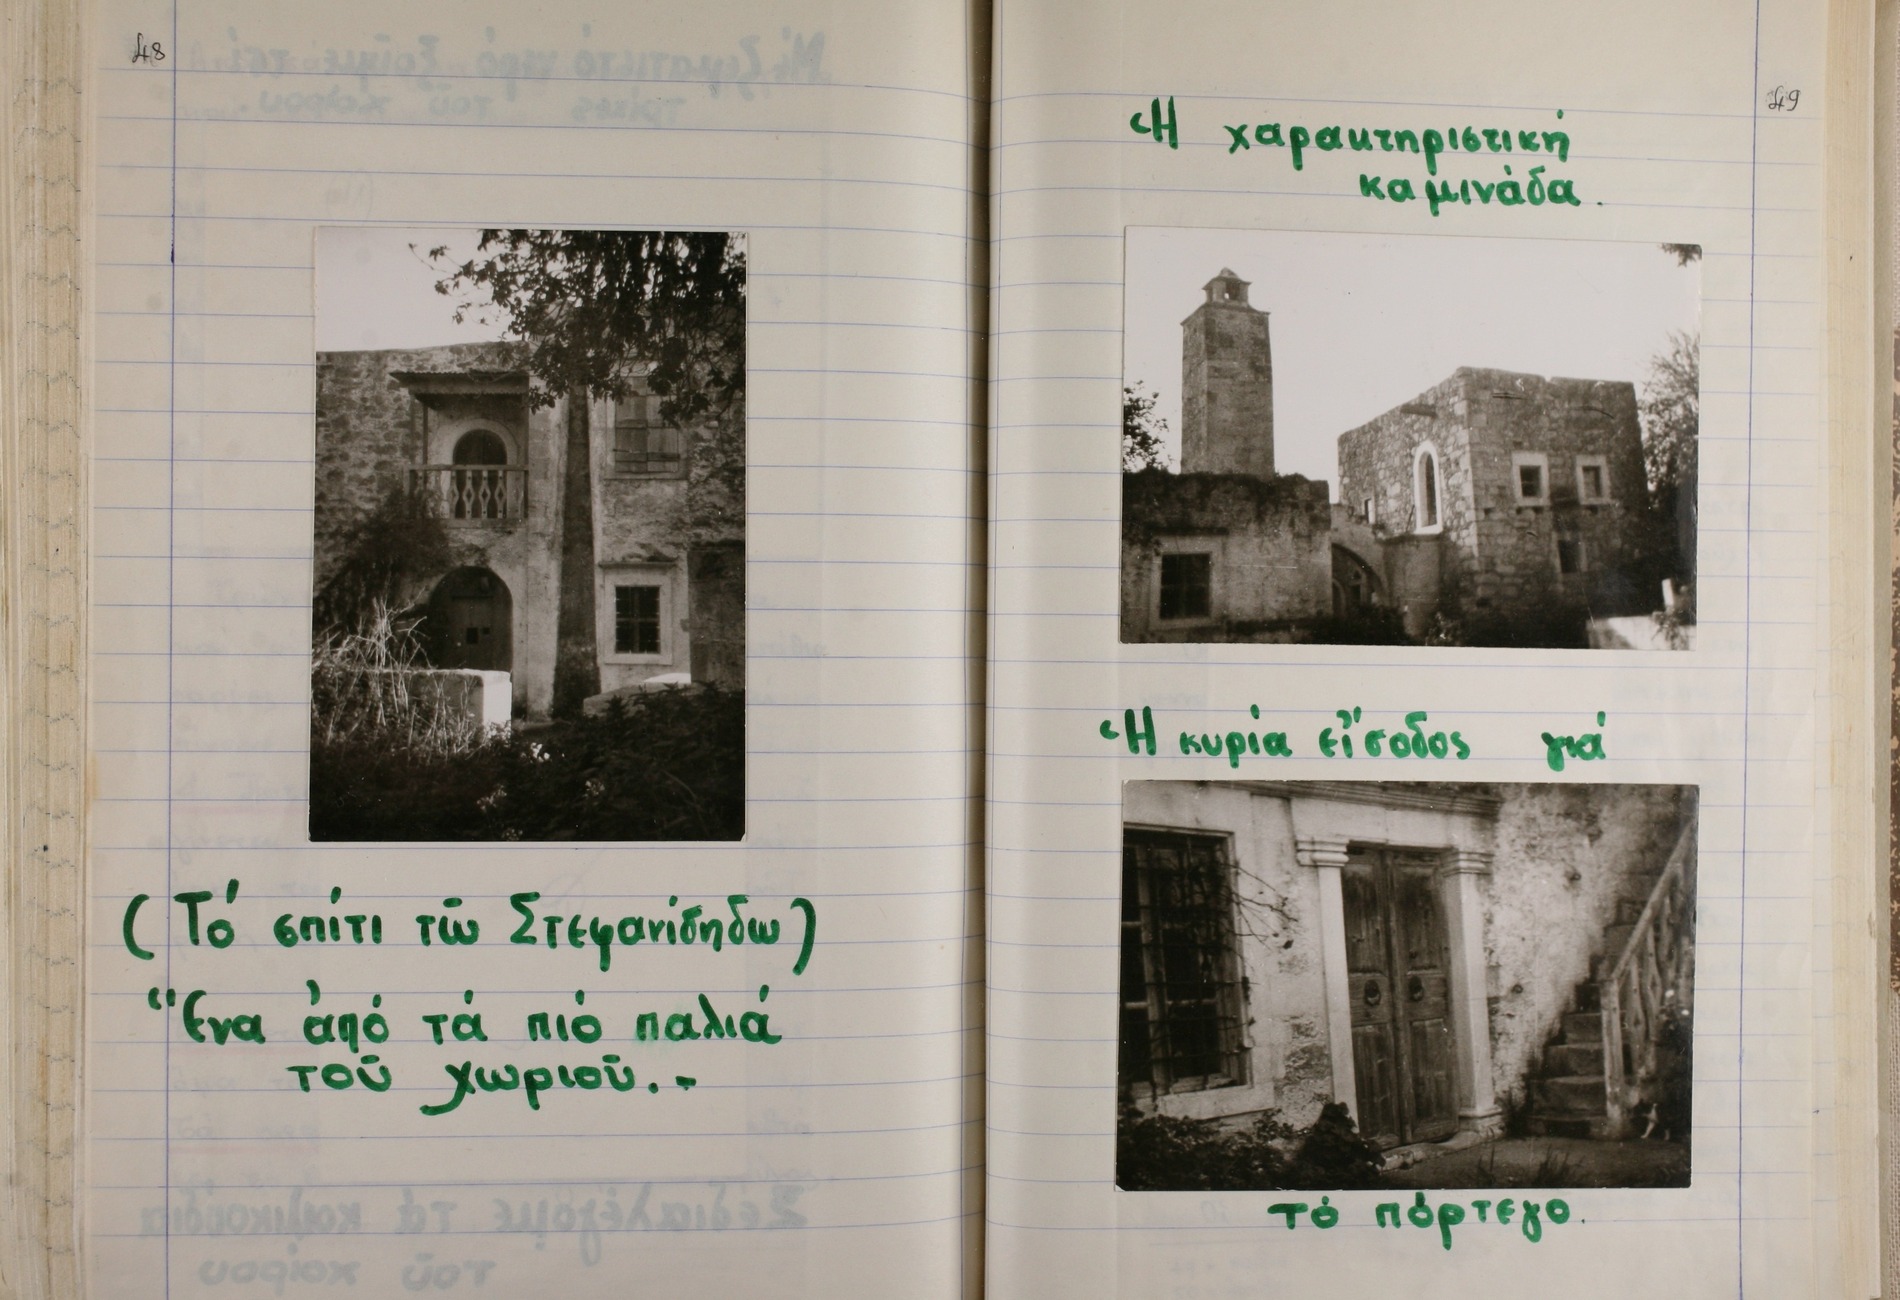 48
(Τό σπίτι τῶ Στεφανίδηδω)
Ἕνα ἀπό τά πιό παλιά
τοῦ χωριοῦ.-
49
Ἡ χαρακτηριστική
καμινάδα.
Ἡ κυρία εἴσοδος γιά
τό πόρτεγο.